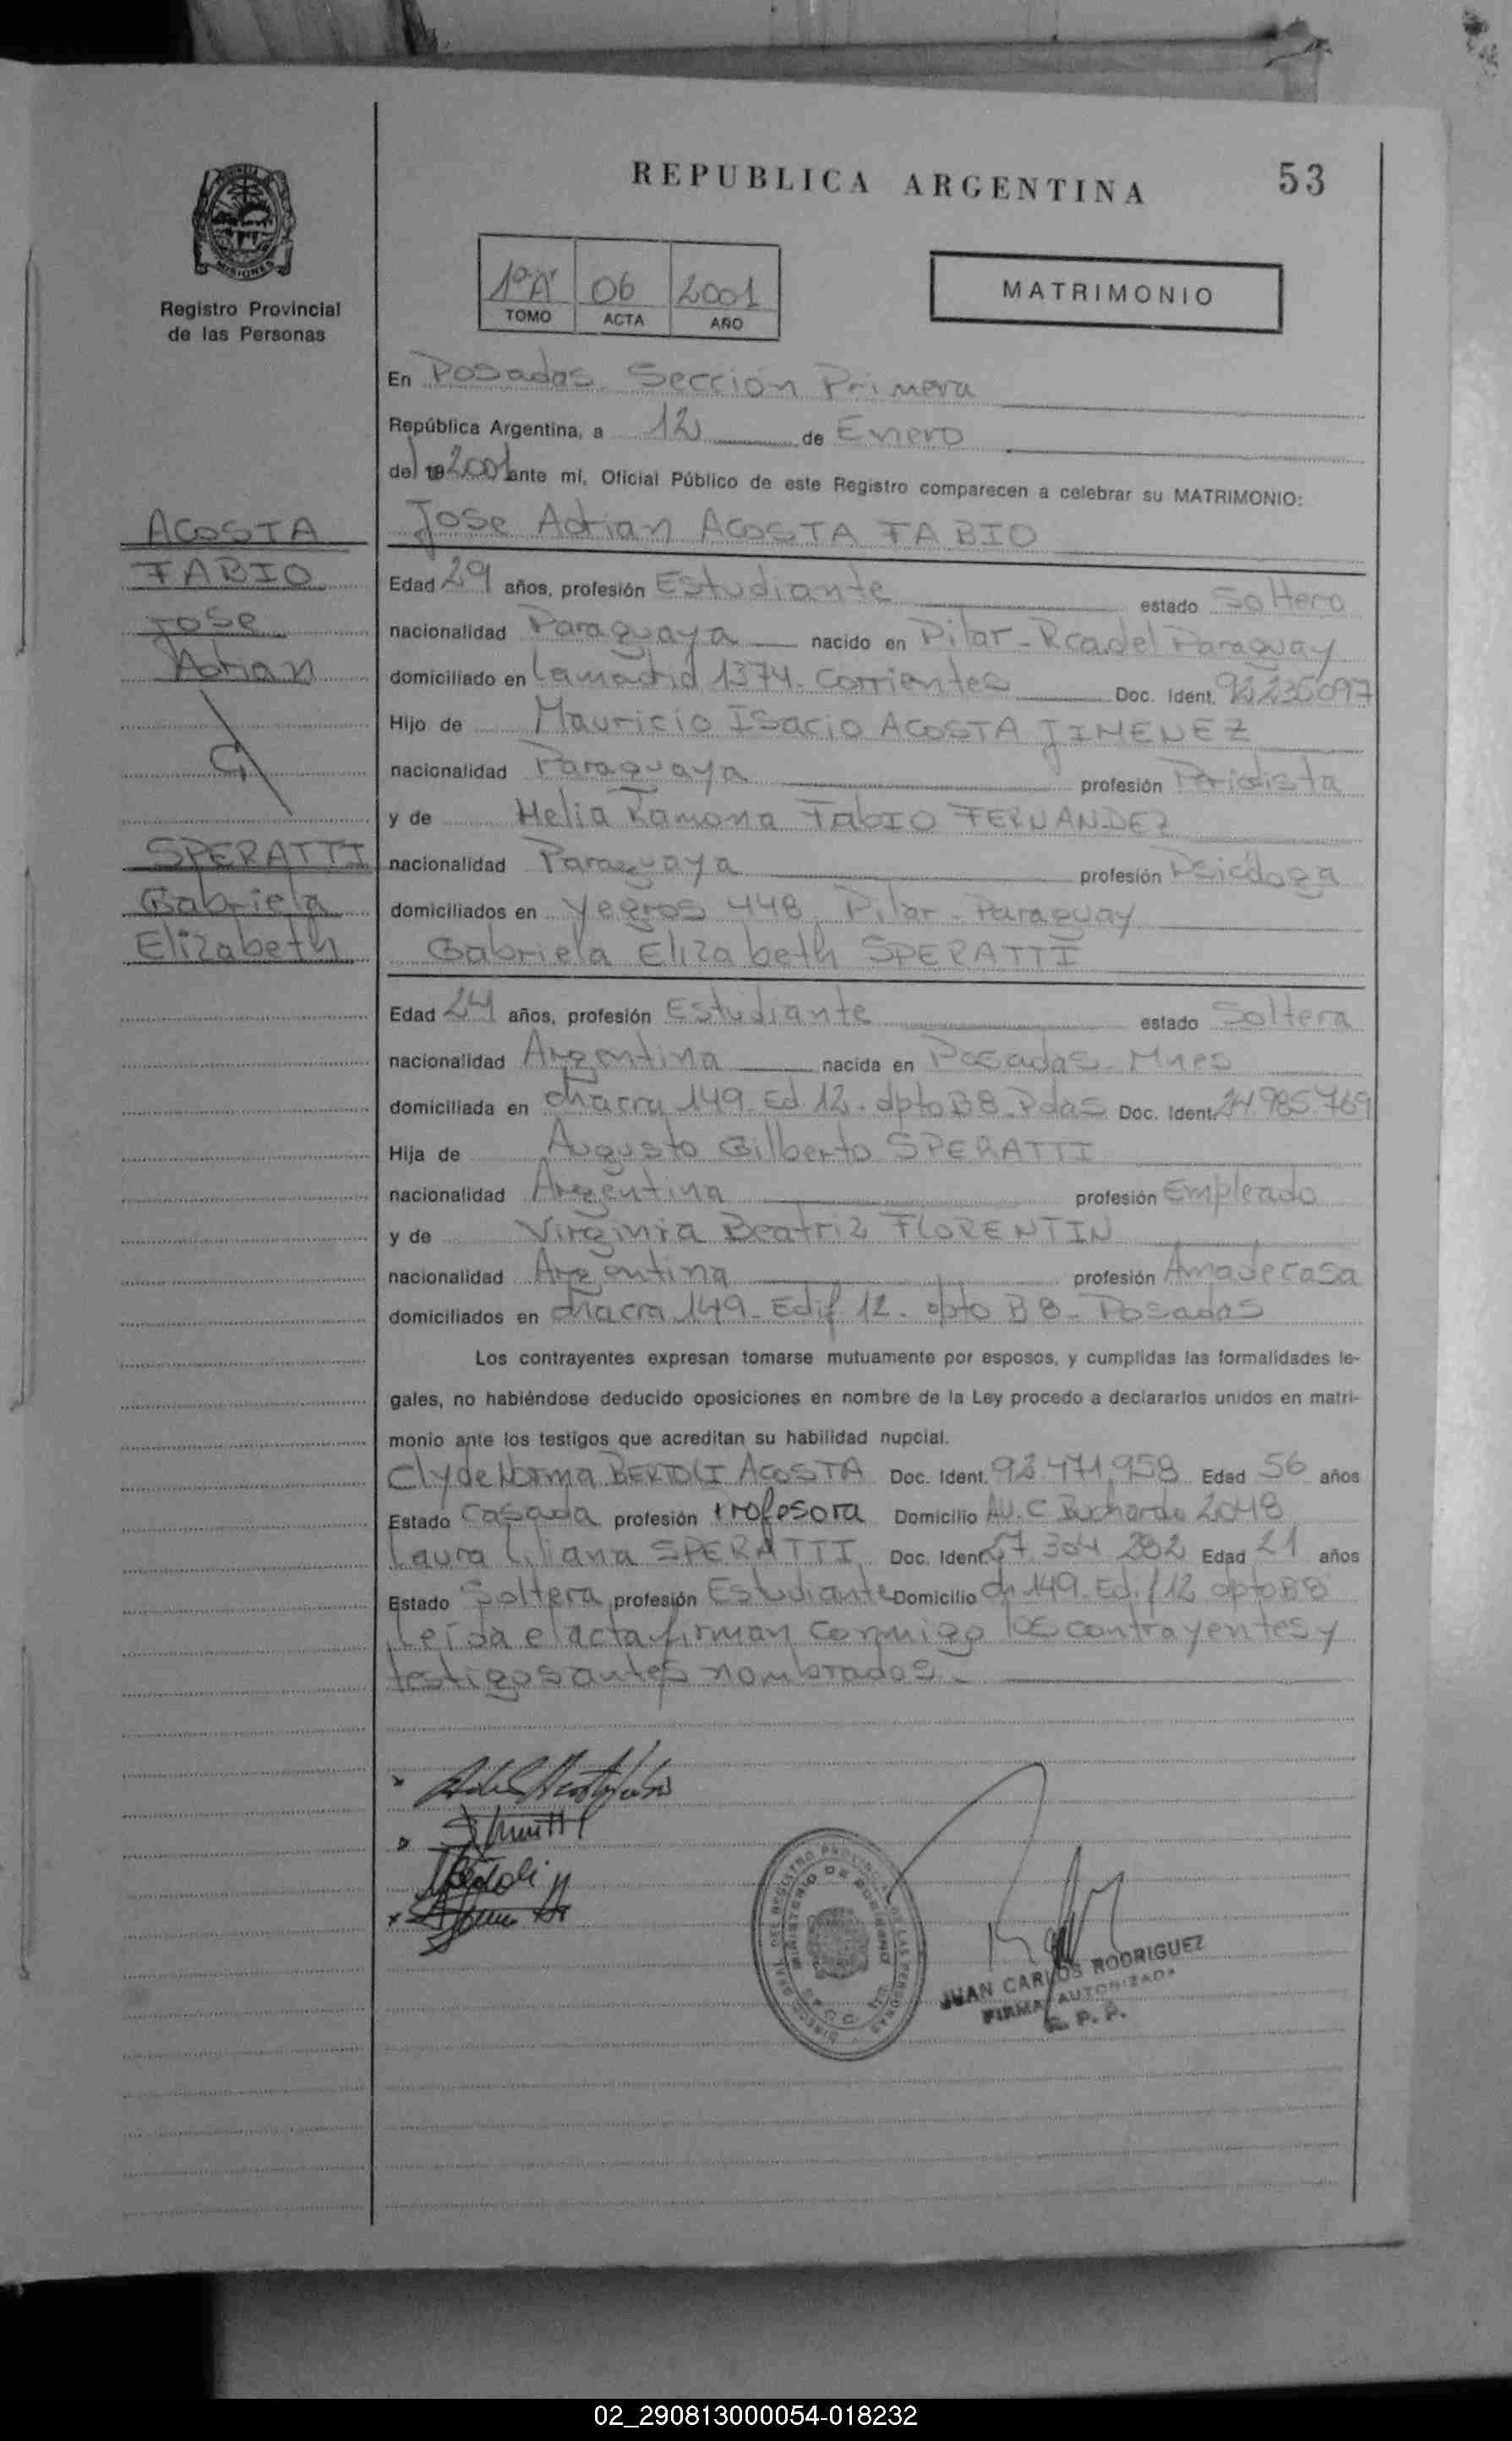 REPUBLICA ARGENTINA
53
MISIONES
Registro Provincial
de las Personas
1º"A" 06 2001
TOMO ACTA AÑO
MATRIMONIO
En Posadas. Sección Primera
República Argentina, a 12 de Enero
del 2001 ante mí, Oficial Público de este Registro comparecen a celebrar su MATRIMONIO:
ACOSTA
FABIO
Jose
Adrian
Jose Adrian ACOSTA FABIO
Edad 29 años, profesión Estudiante estado Soltero
nacionalidad Paraguaya nacido en Pilar - Rca. del Paraguay
domiciliado en Lamadrid 1374. Corrientes Doc. Ident. 92235097
Hijo de Mauricio Isacio ACOSTA JIMENEZ
nacionalidad Paraguaya profesión Periodista
y de Melia Ramona Fabio FERNANDEZ
nacionalidad Paraguaya profesión Psicóloga
domiciliados en Yegros 448 Pilar - Paraguay
SPERATTI
Gabriela
Elizabeth
Gabriela Elizabeth SPERATTI
Edad 24 años, profesión Estudiante estado Soltera
nacionalidad Argentina nacida en Posadas - Mnes
domiciliada en chacra 149. Ed. 12. dpto B8. Pdas Doc. Ident. 24.985.769
Hija de Augusto Gilberto SPERATTI
nacionalidad Argentina profesión Empleado
y de Virginia Beatriz FLORENTIN
nacionalidad Argentina profesión Ama de casa
domiciliados en chacra 149. Edif. 12. dpto B8 - Posadas
Los contrayentes expresan tomarse mutuamente por esposos, y cumplidas las formalidades le-
gales, no habiéndose deducido oposiciones en nombre de la Ley procedo a declararlos unidos en matri-
monio ante los testigos que acreditan su habilidad nupcial.
Clyde Norma BERTOLI ACOSTA Doc. Ident. 92.471.958 Edad 56 años
Estado Casada profesión Profesora Domicilio Av. C. Buchardo 2048
Laura Liliana SPERATTI Doc. Ident. 27.304.282 Edad 21 años
Estado Soltera profesión Estudiante Domicilio ch 149. Edif 12 dpto B8
Leída el acta firman conmigo los contrayentes y
testigos antes nombrados.
JUAN CARLOS RODRIGUEZ
FIRMA AUTORIZADA
R. P. P.
02_290813000054-018232